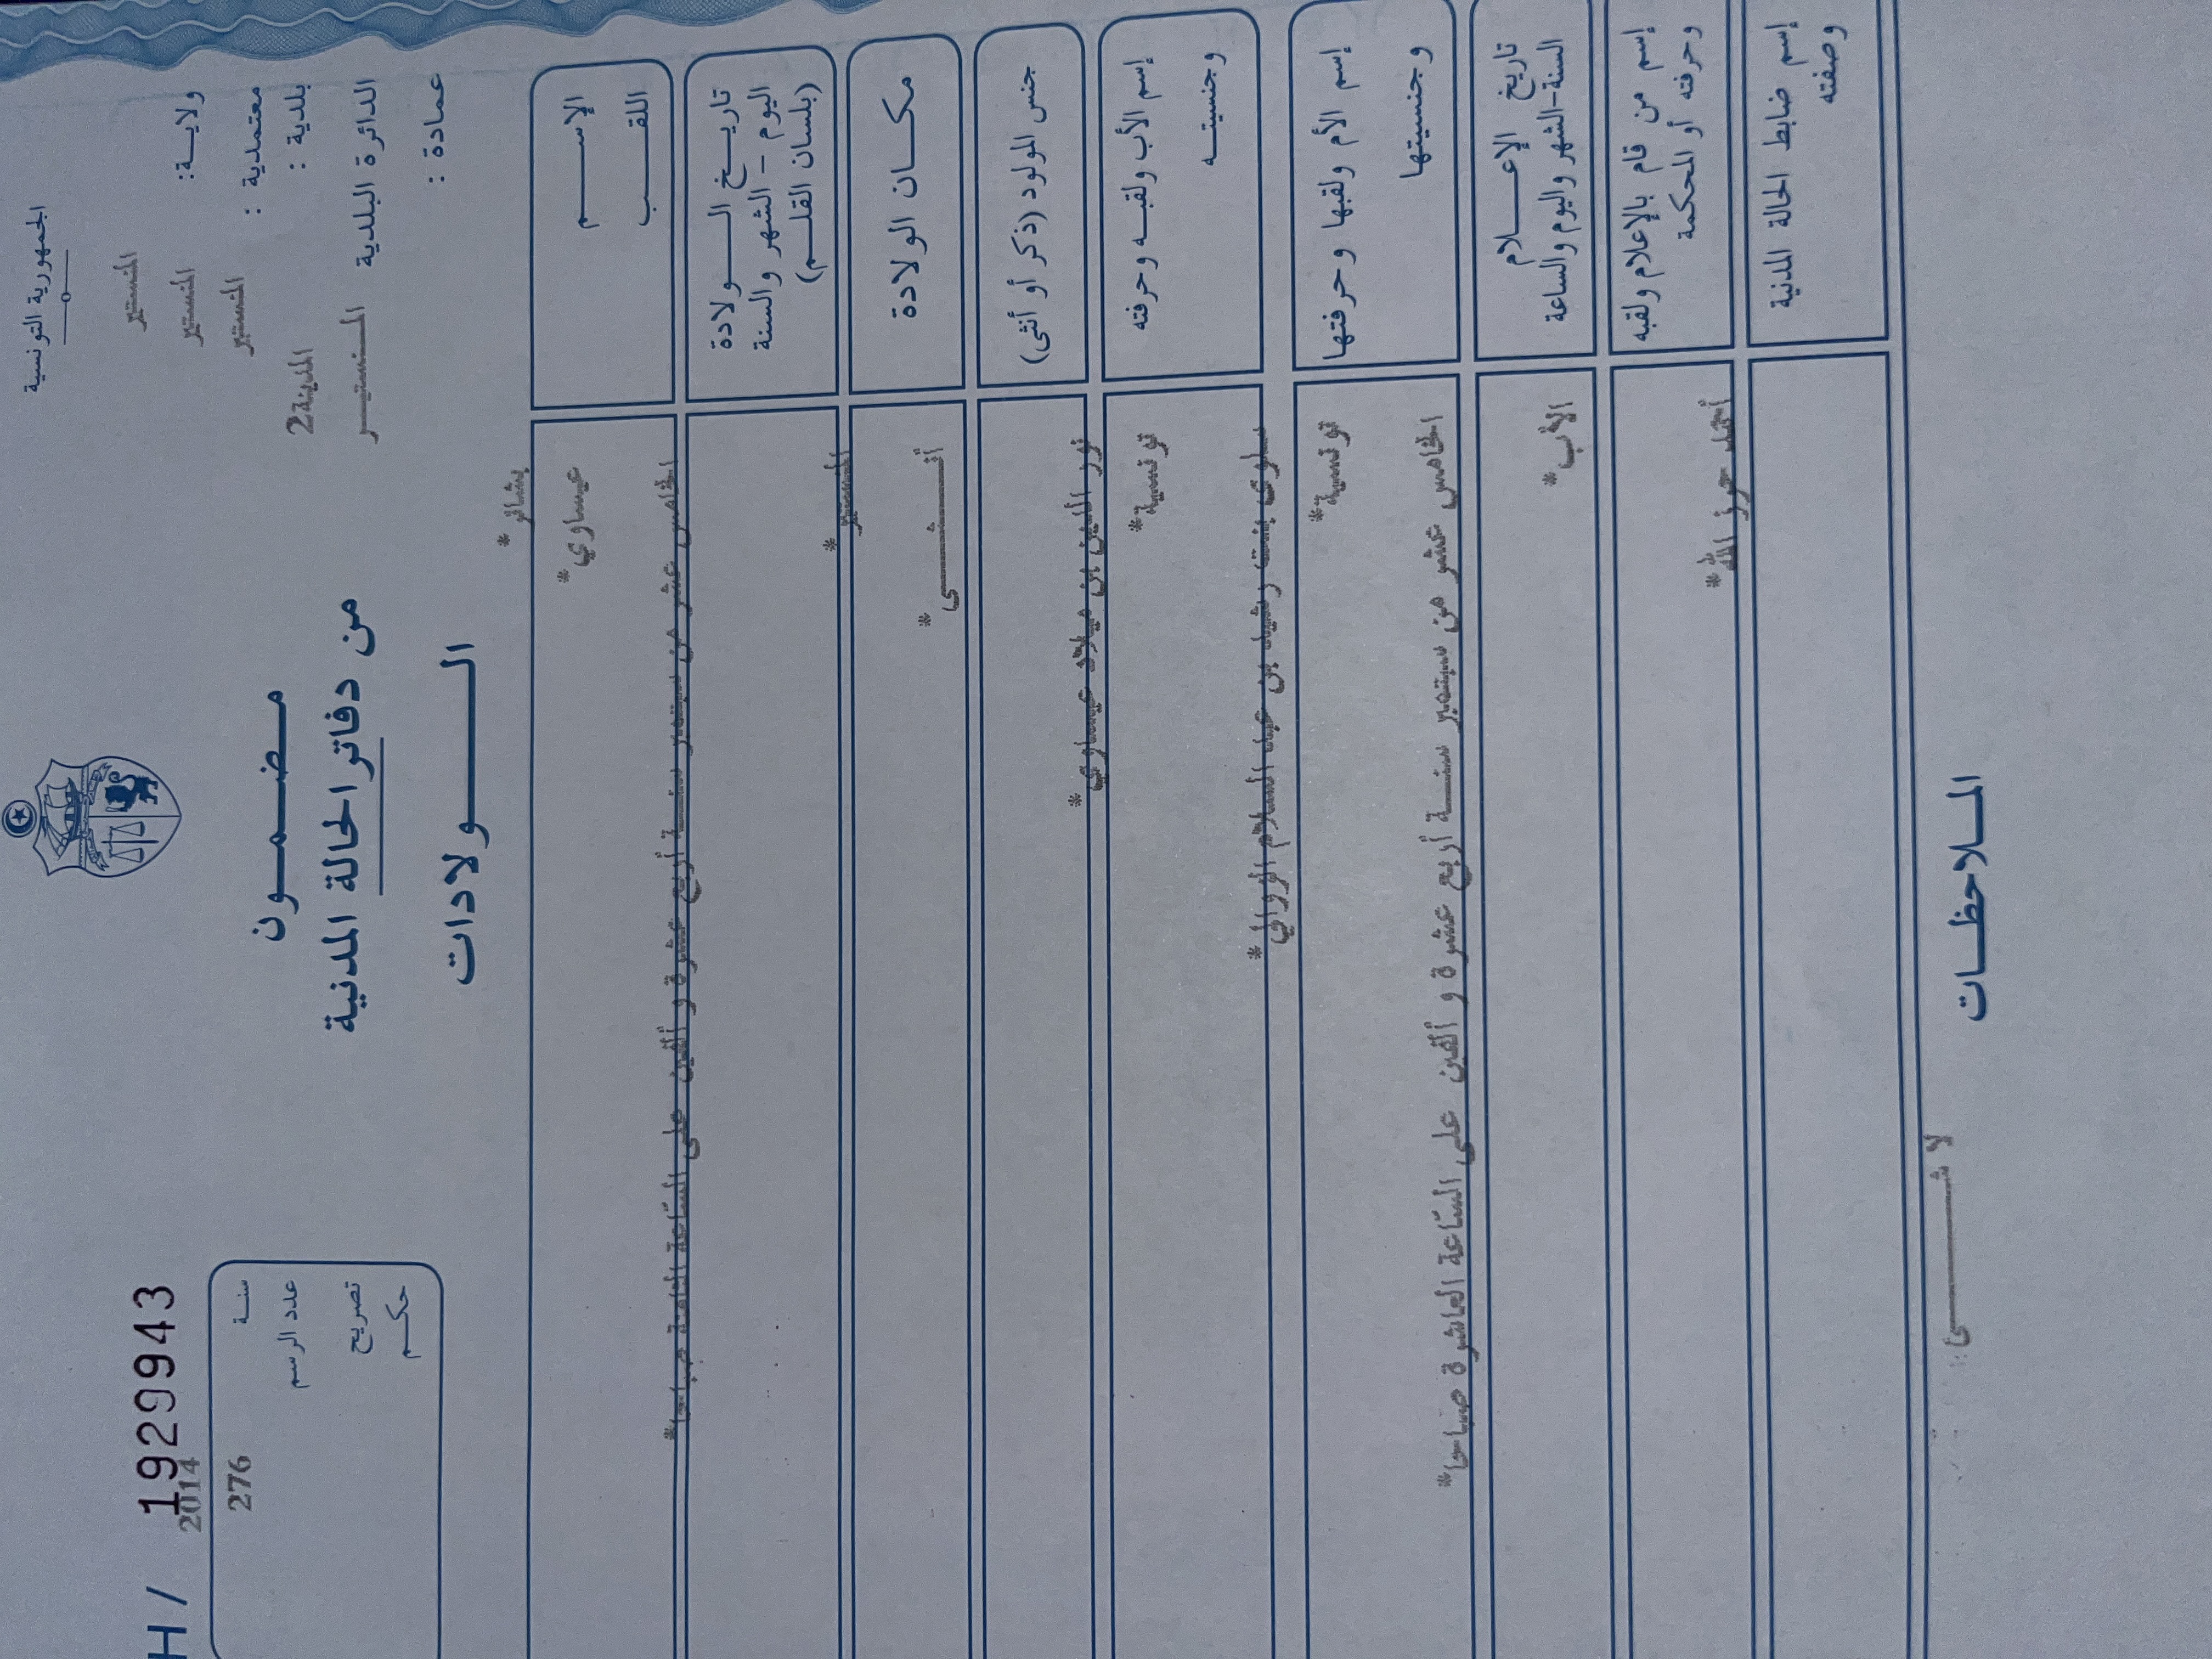 الجمهورية التونسية
ولايـة: المنستير
معتمدية : المنستير
بلدية : المنستير
الدائرة البلدية المدينة2
عمادة : المـنستيـر
مـضـمـون
من دفاتر الحالة المدنية
الـولادات
H / 1929943
سنـة 2014
عدد الرسم 276
تصريح
حكـم
الإسـم بشائر*
اللقـب عيساوي*
تاريـخ الـولادة
اليوم - الشهر والسنة
(بلسان القلـم)
الخامس عشر من سبتمبر سنـة أربع عشرة و ألفين على السّاعة الثامنة صباحا*
مكـان الولادة
المنستير*
جنس المولود (ذكر أو أنثى)
أنـثـى*
إسم الأب ولقبـه وحرفته
نور الدين بن ميلاد عيساوي*
وجنسيتـه
تونسية*
إسم الأم ولقبها وحرفتها
سلوى بنت رشيد بن عبد السلام الزوالي*
وجنسيتها
تونسية*
تاريخ الإعـلام
السنة-الشهر واليوم والساعة
الخامس عشر من سبتمبر سنـة أربع عشرة و ألفين على السّاعة العاشرة صباحا*
إسم من قام بالإعلام ولقبه
وحرفته أو المحكمة
الأب*
إسم ضابط الحالة المدنية
وصفته
حرز الله*
المـلاحظـات
لا شـيء